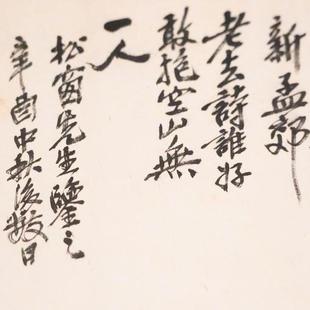 新孟郊
老去詩誰好
敢抱空山無
一人
松窗先生鑒之
辛酉中秋後數日